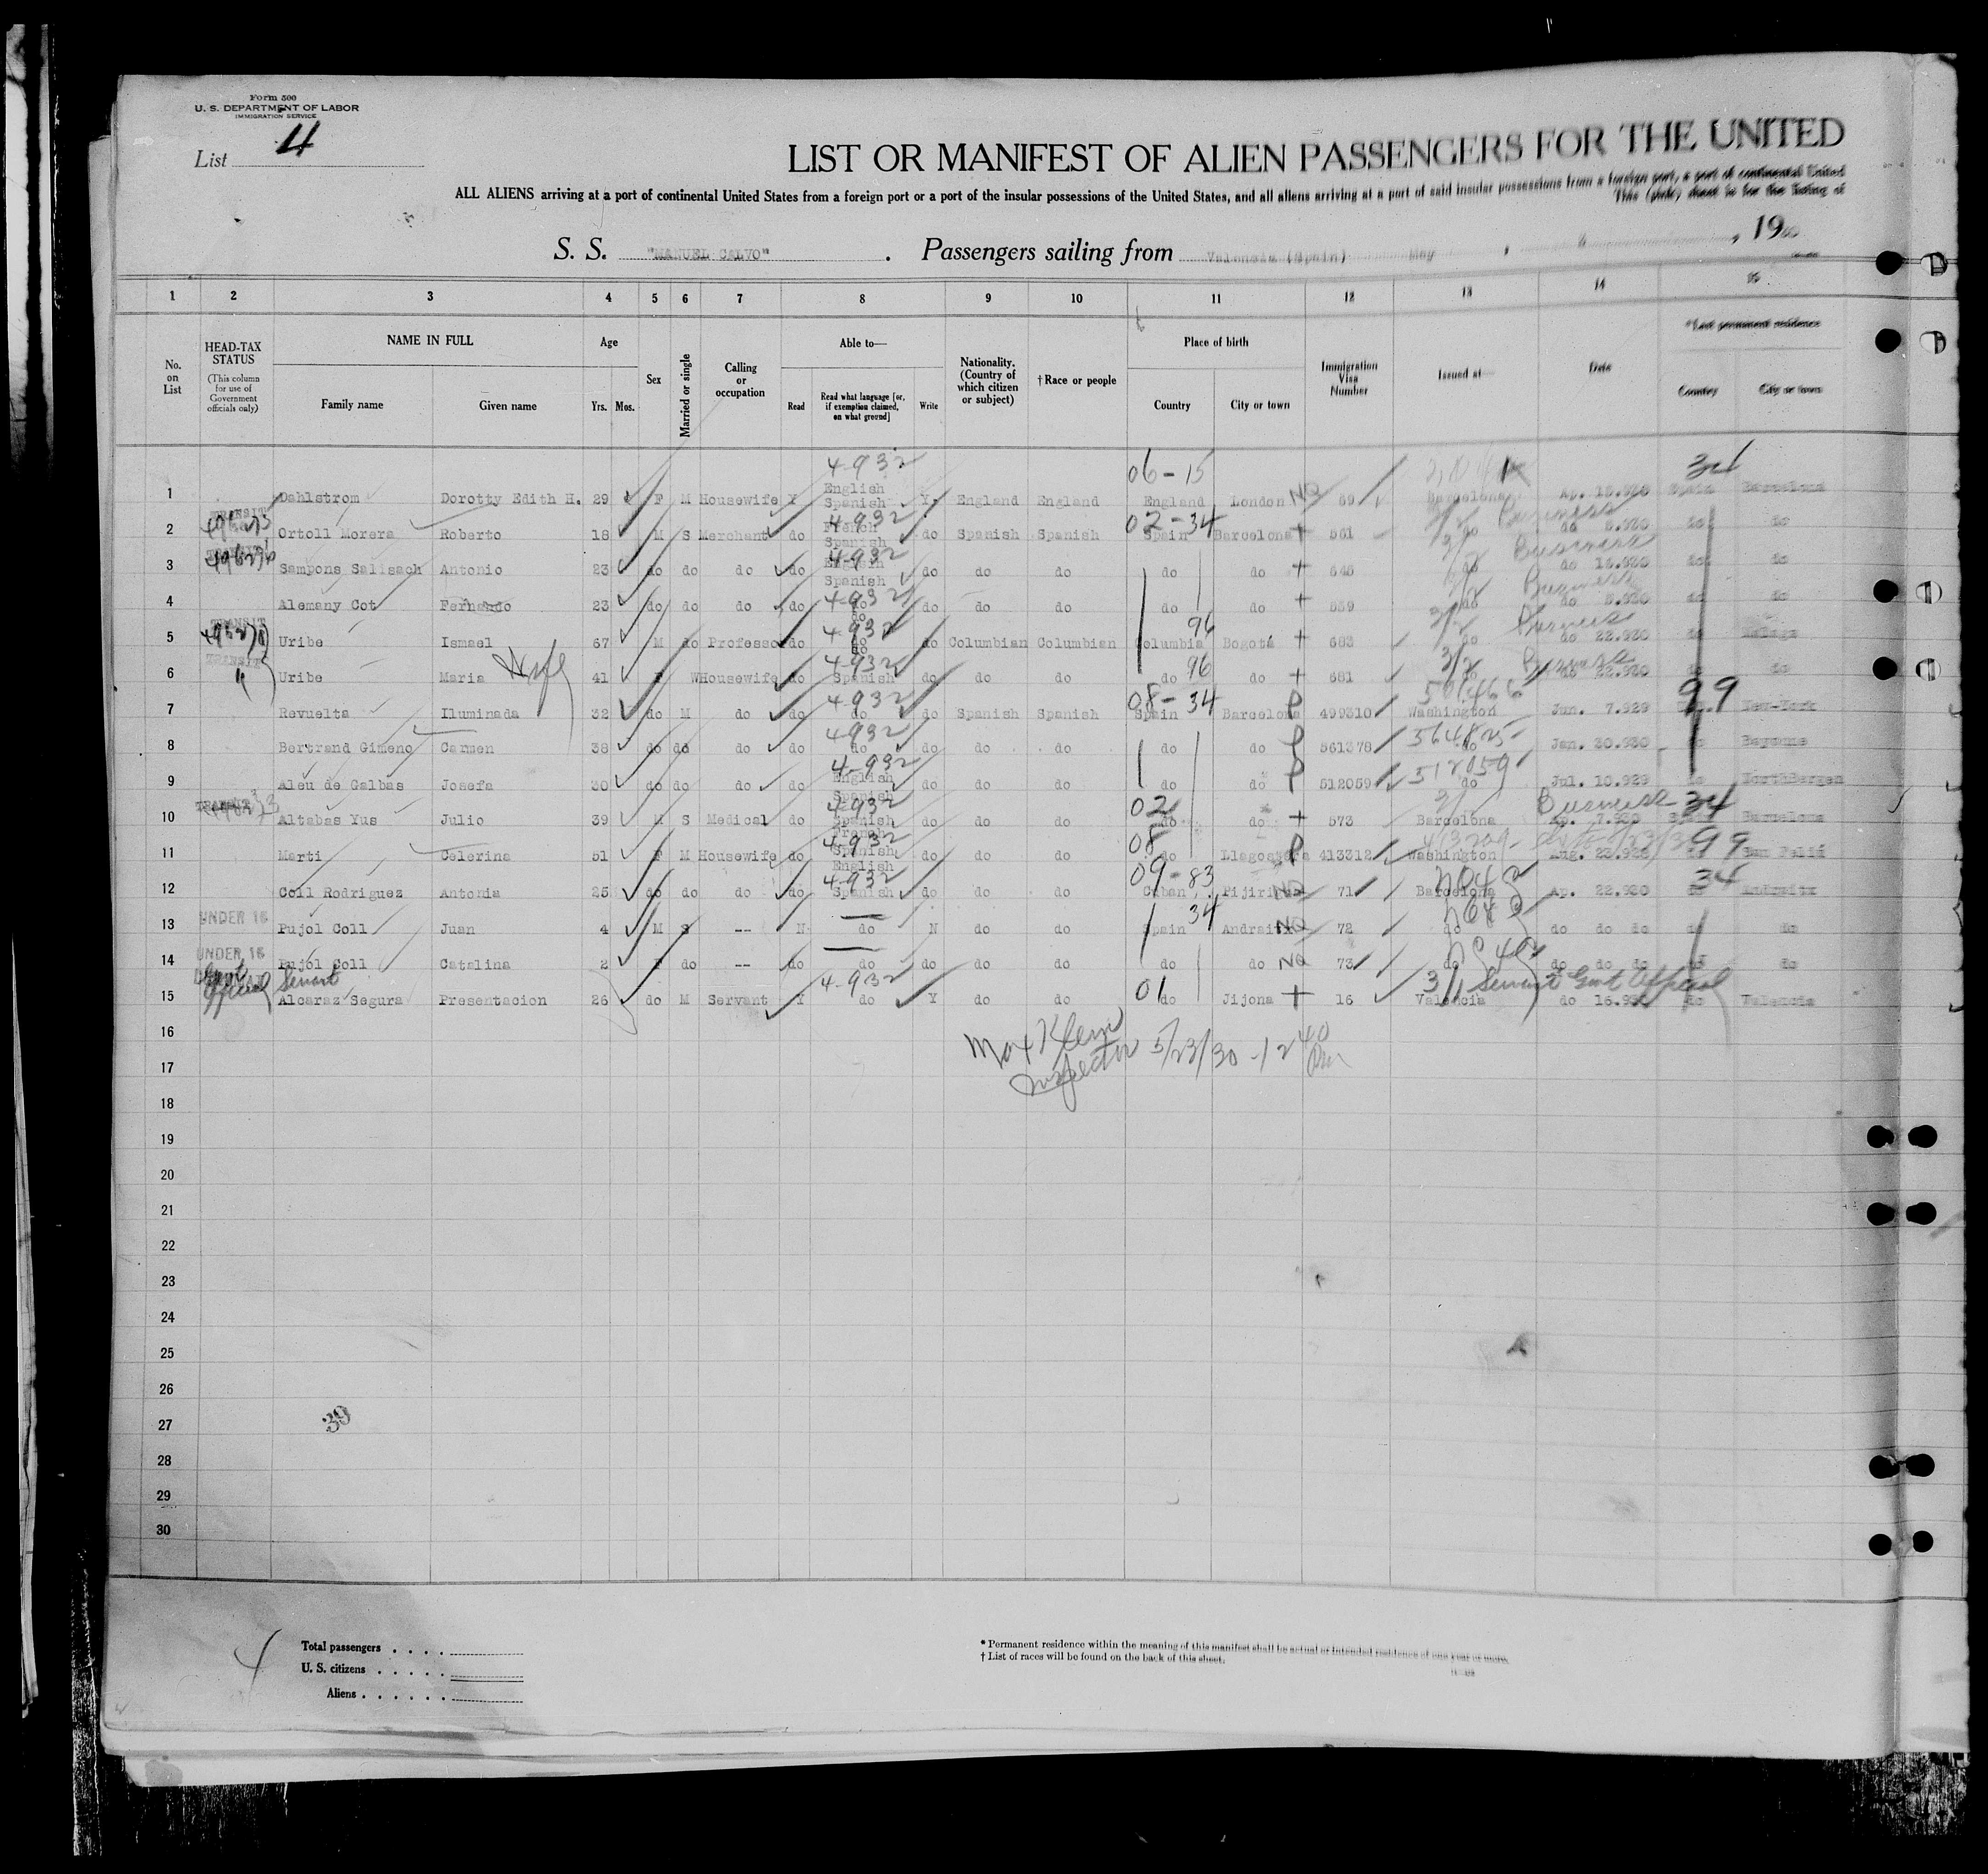 Form 500
U. S. DEPARTMENT OF LABOR
IMMIGRATION SERVICE
List 4
LIST OR MANIFEST OF ALIEN PASSENGERS FOR THE UNITED
ALL ALIENS arriving at a port of continental United States from a foreign port or a port of the insular possessions of the United States, and all aliens arriving at a port of said insular possessions from a foreign port, a port of continental United
This (pink) sheet is for the listing of
S. S. "MANUEL CALVO" . Passengers sailing from Valencia (Spain) May , 19
1 2 3 4 5 6 7 8 9 10 11 12 13 14 15
No. on List
HEAD-TAX STATUS (This column for use of Government officials only)
NAME IN FULL Family name Given name
Age Yrs. Mos.
Sex
Married or single
Calling or occupation
Able to— Read Read what language [or, if exemption claimed, on what ground] Write
Nationality. (Country of which citizen or subject)
† Race or people
Place of birth Country City or town
Immigration Visa Number
Issued at—
Date
*Last permanent residence Country City or town
4-932 06-15 34
1 Dahlstrom Dorotty Edith H. 29 F M Housewife Y English Spanish Y. England England England London NQ 69 Barcelona Ap. 15.930 Spain Barcelona
TRANSIT 4-932 02-34 3/2 Business
2 Ortoll Morera Roberto 18 M S Merchant do French Spanish do Spanish Spanish Spain Barcelona + 561 do do 5.930 do do
4-932 3/2 Business
3 Sampons Salisach Antonio 23 do do do do English Spanish do do do do do + 648 do do 15.930 do do
4-932 3/2 Business
4 Alemany Cot Fernando 23 do do do do do do do do do do + 559 do do 5.930 do do
TRANSIT 4-932 96 3/2 Business
5 Uribe Ismael 67 M do Professor do do do Columbian Columbian Columbia Bogotá + 683 do do 22.930 do Malaga
TRANSIT " Wife 4-932 96 3/2 Business
6 Uribe Maria 41 F W Housewife do Spanish do do do do do + 681 do do 22.930 do do
4-932 08-34 501466 99
7 Revuelta Iluminada 32 do M do do do do Spanish Spanish Spain Barcelona P 499310 Washington Jun. 7.929 New-York
4-932 564825
8 Bertrand Gimeno Carmen 38 do do do do do do do do do do P 561378 do Jan. 30.930 do Bayonne
4-932 512059
9 Aleu de Galbas Josefa 30 do do do do English Spanish do do do do do P 512059 do Jul. 10.929 do NorthBergen
TRANSIT 4-932 02 3/ Business 34
10 Altabas Yus Julio 39 M S Medical do Spanish French do do do do do + 573 Barcelona Ap. 7.930 Spain Barcelona
4-932 08 99
11 Marti Celerina 51 F M Housewife do Spanish English do do do do Llagostera P 413312 Washington Aug. do San Feliú
4-932 09-83 34
12 Coll Rodriguez Antonia 25 do do do do Spanish do do do Cuban NQ 71 Barcelona Ap. 22.930 do Andraitx
UNDER 16 34
13 Pujol Coll Juan 4 M S -- N do N do do Spain Andraitx NQ 72 do do do do do do
UNDER 16
14 Pujol Coll Catalina 2 F do -- do do do do do do do NQ 73 do do do do do do
Govt Official Servant 4-932 01 3/1 Servant Govt Official
15 Alcaraz Segura Presentacion 26 do M Servant Y do Y do do do Jijona + 16 Valencia do 16.930 do Valencia
16
Max Klein
Inspector 5/23/30 - 12 40 PM
17
18
19
20
21
22
23
24
25
26
27
39
28
29
30
4
Total passengers . . . .
U. S. citizens . . . . .
Aliens . . . . . .
* Permanent residence within the meaning of this manifest shall be actual or intended residence of one year or more.
† List of races will be found on the back of this sheet.